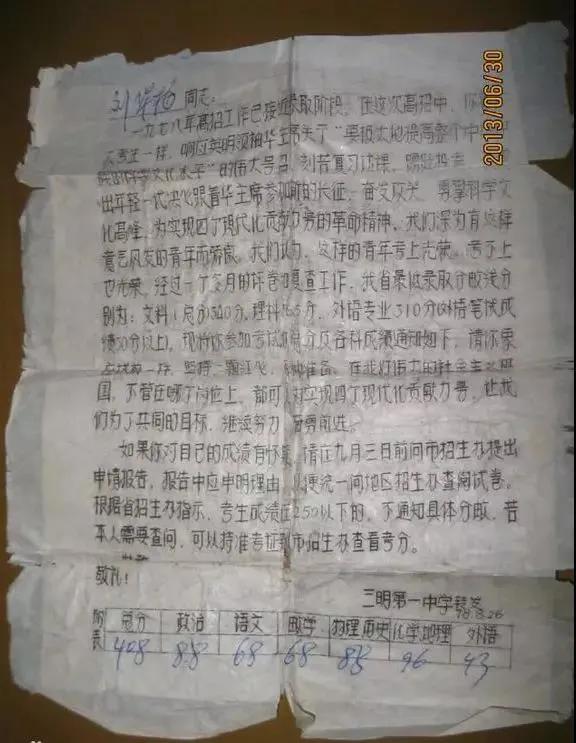 2013/06/30
同志:
一九七八年高招工作已接近录取阶段。在这次高招中,你
一样,响应英明领袖华主席关于"要极大地提高整个中
科学文化水平"的伟大号召,刻苦复习功课,踊跃投考
出年轻一代决心跟着华主席参加新的长征,奋发攻关,勇攀科学文
化高峰,为实现四个现代化贡献力量的革命精神。我们深为有这样
意气风发的青年而骄傲。我们认为,这样的青年考上光荣,考不上
也光荣。经过一个多月的评卷和复查工作,我省最低录取分数线分
别为:文科(总分)340分,理科365分,外语专业310分(外语笔试成
绩50分以上)。现将你参加考试的总分及各科成绩通知如下,请你象
一样,坚持一颗红心,两种准备。在我们伟大的社会主义祖
国,不管在哪个岗位上,都可以对实现四个现代化贡献力量,让我
们为了共同的目标,继续努力,奋勇前进。
如果你对自己的成绩有怀疑,请在九月三日前向市招生办提出
申请报告,报告中应申明理由,以便统一向地区招生办查阅试卷。
根据省招生办指示,考生成绩在250以下的,不通知具体分数,若
本人需要查问,可以持准考证到市招生办查看考分。
此致
敬礼!
三明第一中学转发
78.8.26
附表 总分 政治 语文 数学 物理历史 化学地理 外语
408 88 68 68 88 96 43